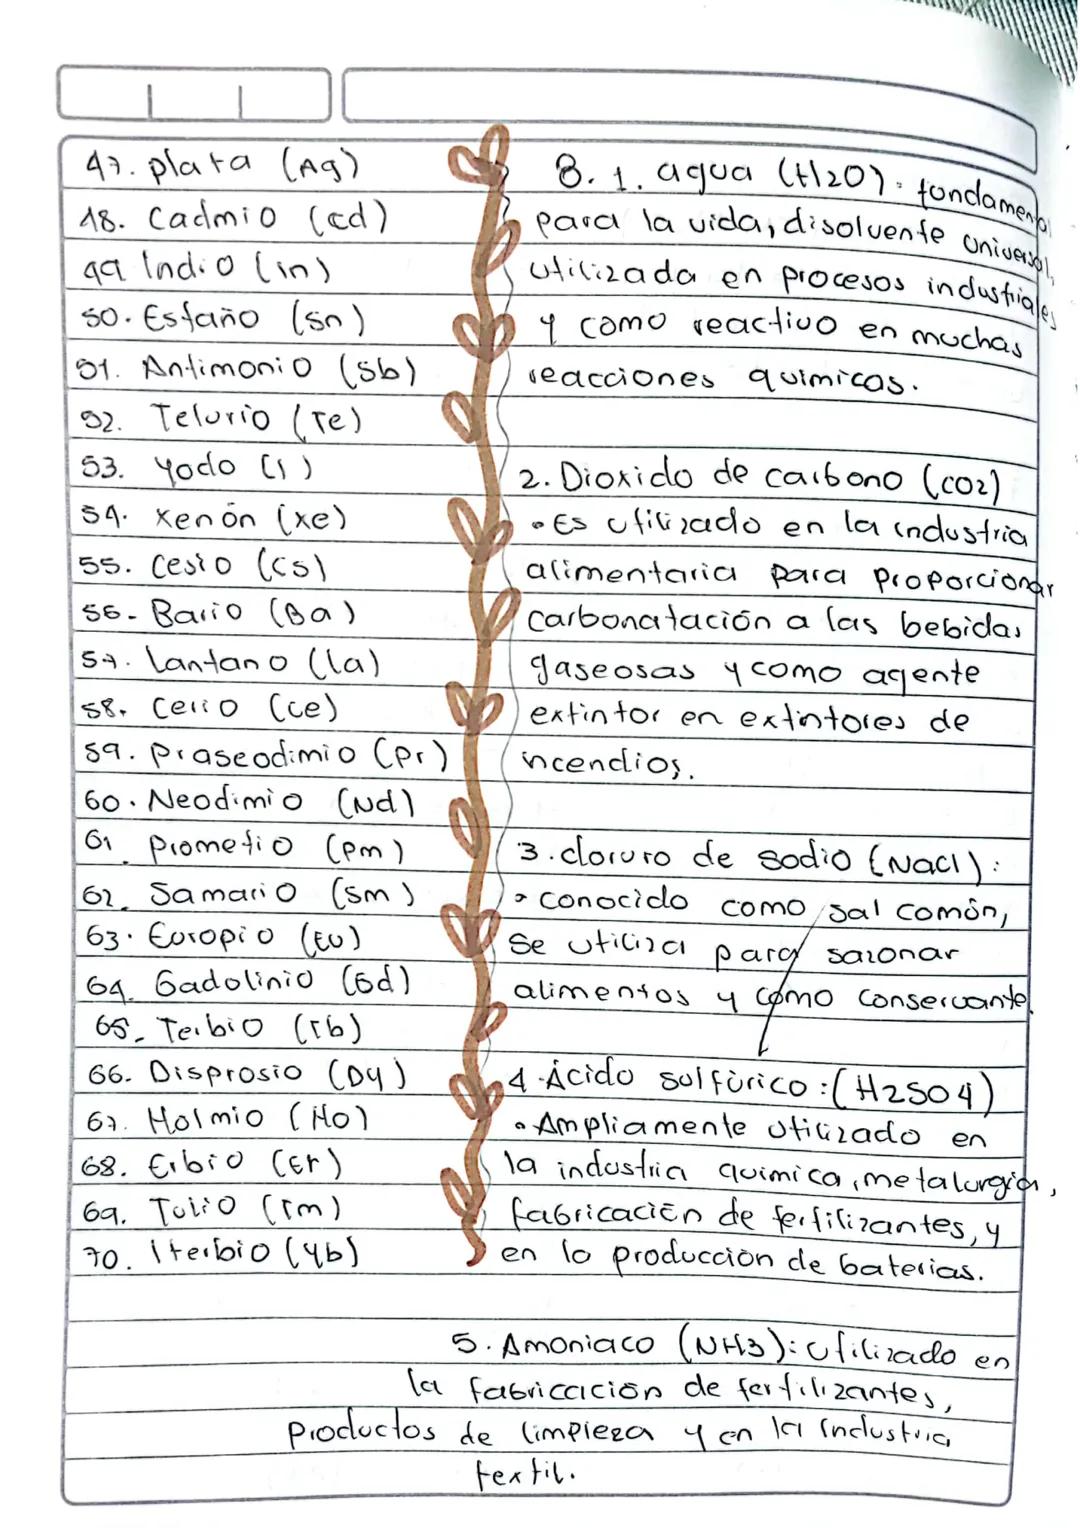 47. plata (Ag)
48. Cadmio (cd)
49 Indio (in)
50. Estaño (sn)
51. Antimonio (sb)
52. Telurio (Te)
53. yodo (I)
54. xenón (xe)
55. cesio (cs)
56- Bario (Ba)
57. lantano (la)
58. cerio (ce)
59. praseodimio (pr)
60. Neodimio (Nd)
61. prometio (pm)
62. Samario (sm)
63. Europio (Eu)
64. Gadolinio (Gd)
65- Terbio (Tb)
66. Disprosio (Dy)
67. Holmio (Ho)
68. Erbio (Er)
69. Tulio (Tm)
70. Iterbio (yb)
8. 1. agua (H2O). fundamental
para la vida, disolvente universal,
utilizada en procesos industriales
y como reactivo en muchas
reacciones quimicas.
2. Dioxido de carbono (co2)
• Es utilizado en la industria
alimentaria para proporcionar
carbonatación a las bebidas
gaseosas y como agente
extintor en extintores de
incendios.
3. cloruro de sodio (Nacl):
• conocido como sal común,
se utiliza para sazonar
alimentos y como conservante.
4. Ácido sulfúrico: (H2SO4)
• Ampliamente utilizado en
la industria quimica, metalurgia,
fabricación de fertilizantes, y
en la producción de baterias.
5. Amoniaco (NH3): utilizado en
la fabricación de fertilizantes,
productos de limpieza y en la industria
textil.